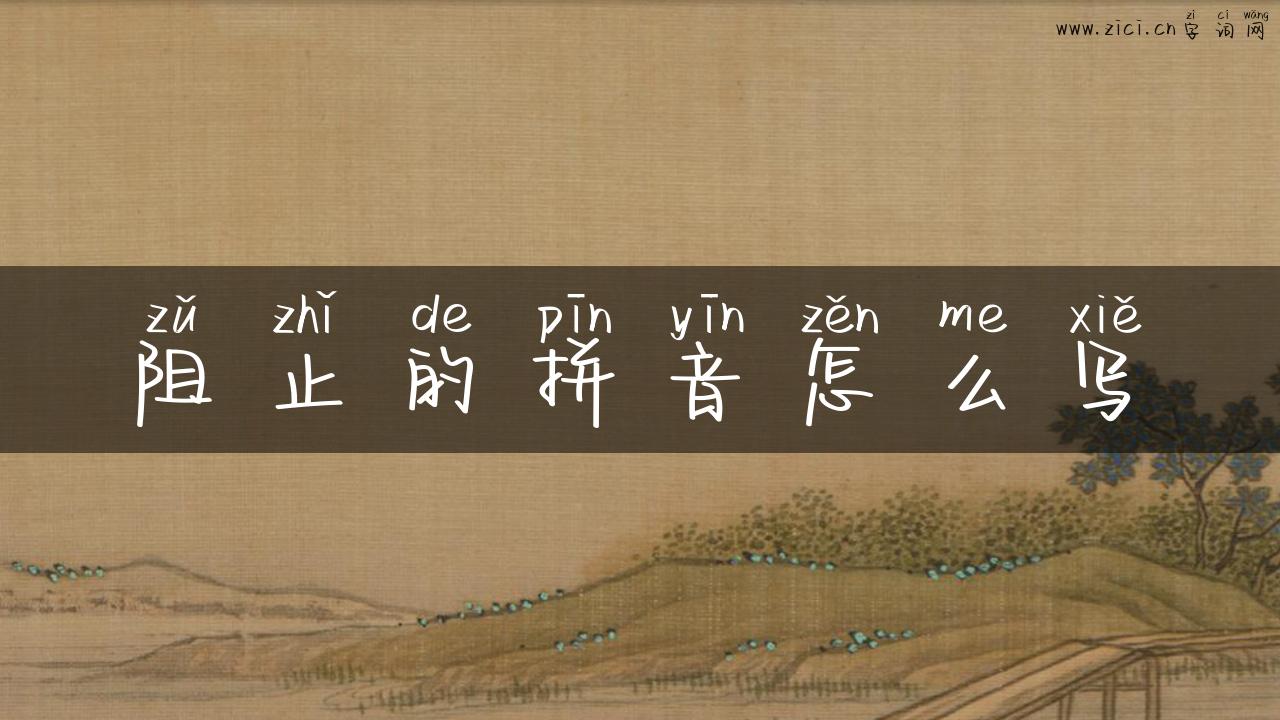 zì cí wǎng
www.zici.cn 字 词 网
zǔ zhǐ de pīn yīn zěn me xiě
阻 止 的 拼 音 怎 么 写